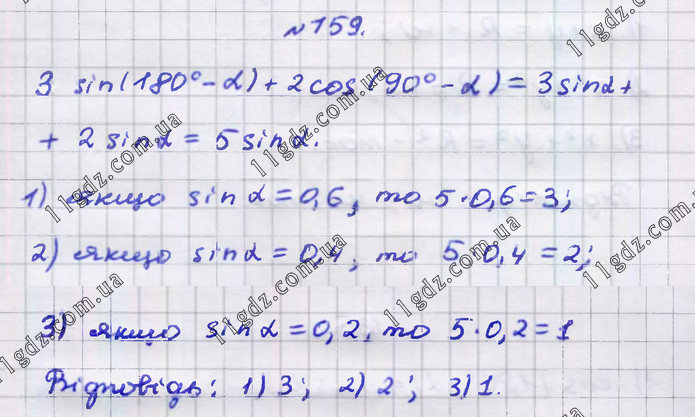 №159.
3 sin(180° - α) + 2 cos(90° - α) = 3 sin α +
+ 2 sin α = 5 sin α.
1) якщо sin α = 0,6, то 5·0,6 = 3;
2) якщо sin α = 0,4, то 5·0,4 = 2;
3) якщо sin α = 0,2, то 5·0,2 = 1
Відповідь: 1) 3; 2) 2; 3) 1.
11gdz.com.ua
11gdz.com.ua
11gdz.com.ua
11gdz.com.ua
11gdz.com.ua
11gdz.com.ua
11gdz.com.ua
11gdz.com.ua